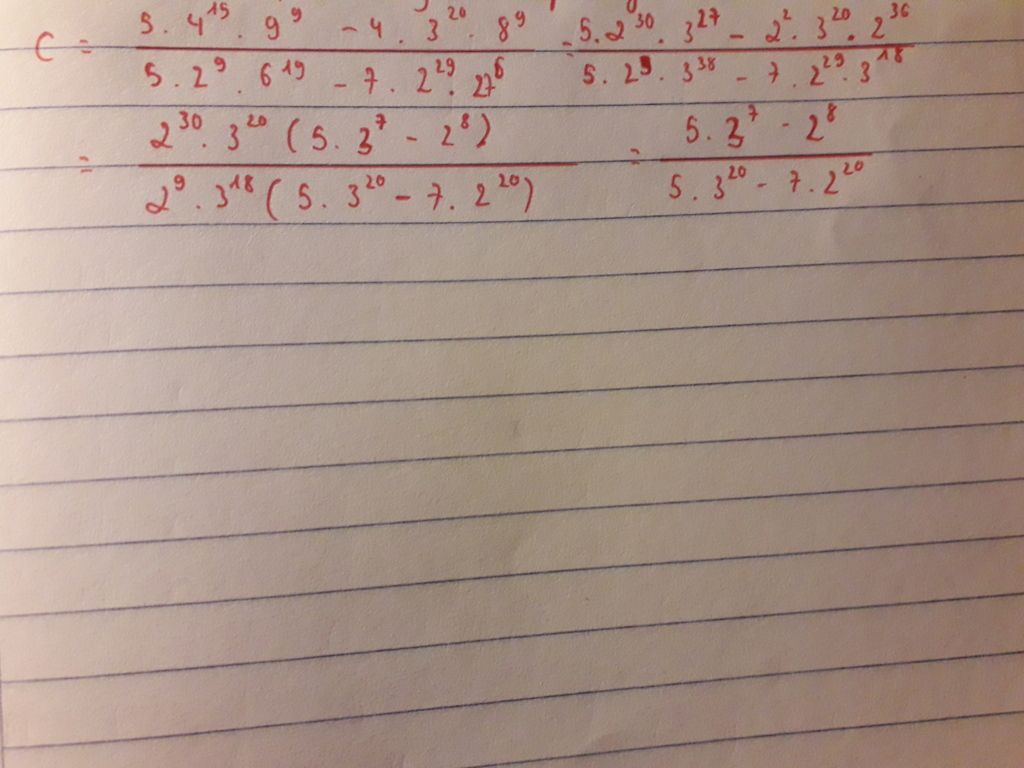 C = \frac{5 . 4^{15} . 9^9 - 4 . 3^{20} . 8^9}{5 . 2^9 . 6^{19} - 7 . 2^{29} . 27^6} = \frac{5 . 2^{30} . 3^{27} - 2^2 . 3^{20} . 2^{36}}{5 . 2^9 . 3^{38} - 7 . 2^{29} . 3^{18}}
= \frac{2^{30} . 3^{20} ( 5 . 3^7 - 2^8 )}{2^9 . 3^{18} ( 5 . 3^{20} - 7 . 2^{20} )} = \frac{5 . 3^7 - 2^8}{5 . 3^{20} - 7 . 2^{20}}